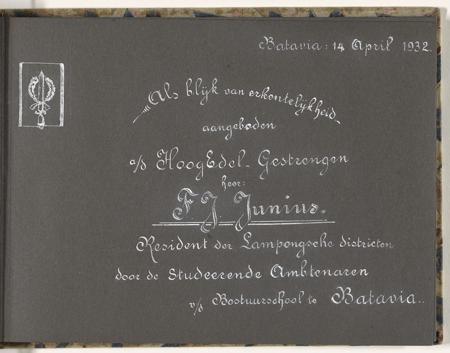 Batavia: 14 April 1932.
Als blijk van erkentelijkheid
aangeboden
a/d HoogEdel-Gestrengen
heer:
F J Junius.
Resident der Lampongsche districten
door de Studeerende Ambtenaren
v/d Bestuurschool te Batavia..